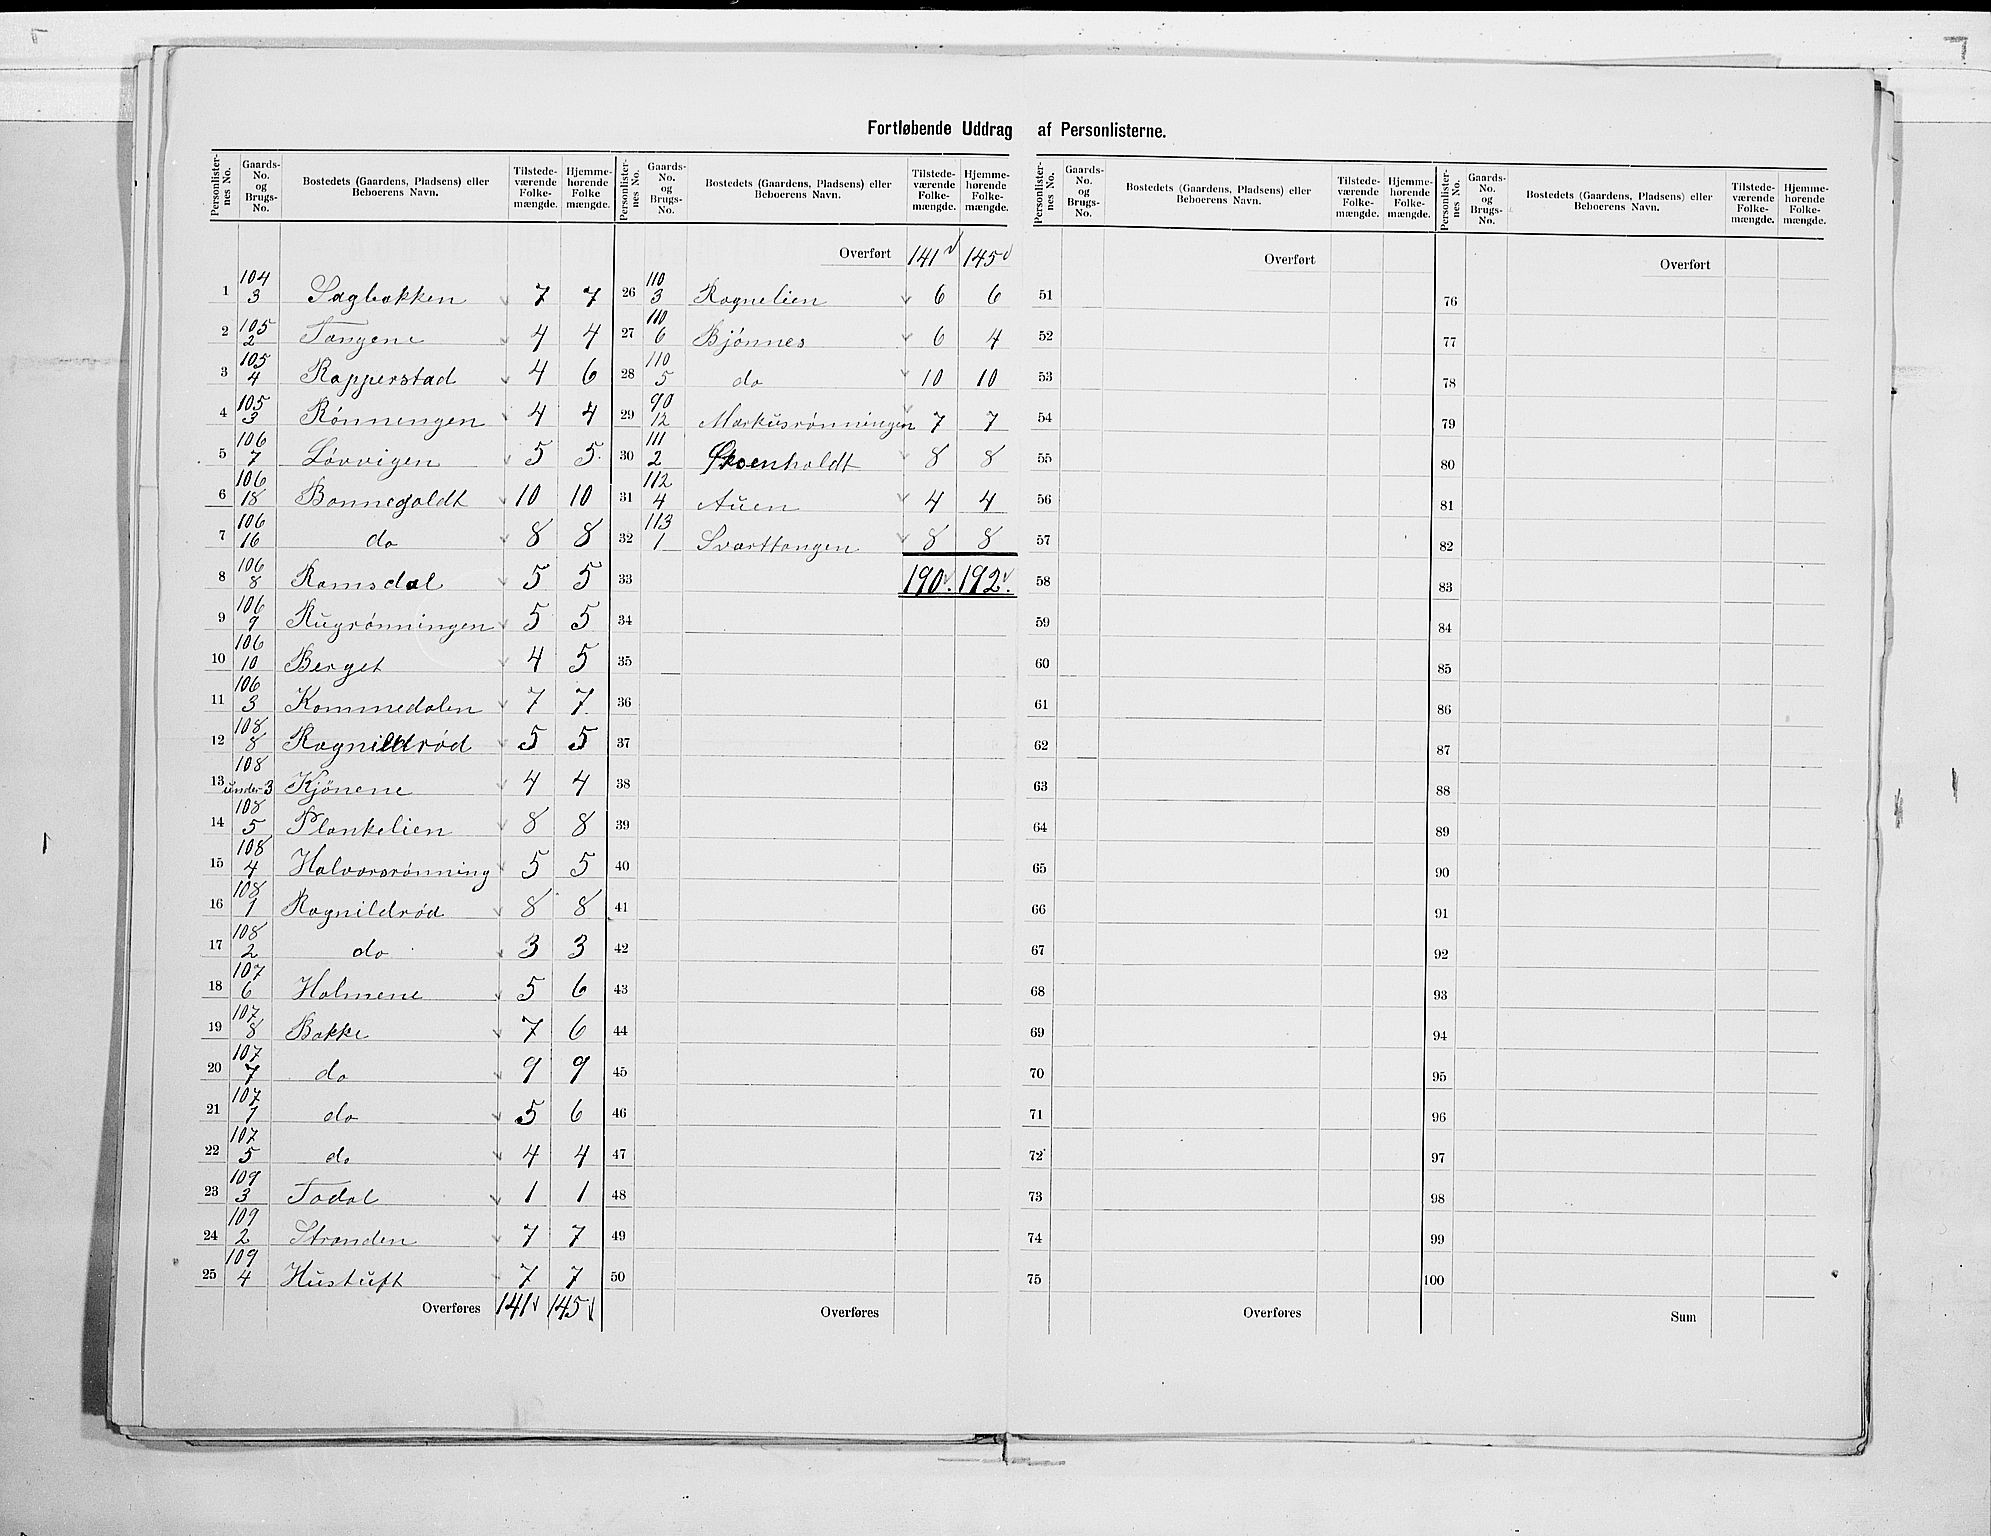 Fortløbende Uddrag af Personlisterne.
Personlister-nes No. | Gaards-No. og Brugs-No. | Bostedets (Gaardens, Pladsens) eller Beboerens Navn. | Tilstede-værende Folke-mængde. | Hjemme-hørende Folke mængde.
1 104/3 Sagbakken 7 7
2 105/2 Tangene 4 4
3 105/4 Rapperstad 4 6
4 105/3 Rønningen 4 4
5 106/7 Løvvigen 5 5
6 106/18 Bonnegoldt 10 10
7 106/16 do 8 8
8 106/8 Ramsdal 5 5
9 106/9 Rugrønningen 5 5
10 106/10 Berget 4 5
11 106/3 Kammedalen 7 7
12 108/8 Ragnildrød 5 5
13 108/under 3 Kjønene 4 4
14 108/5 Plankelien 8 8
15 108/4 Halvorsrønning 5 5
16 108/1 Ragnildrød 8 8
17 108/2 do 3 3
18 107/6 Holmene 5 6
19 107/8 Bakke 7 6
20 107/7 do 9 9
21 107/1 do 5 6
22 107/5 do 4 4
23 109/3 Todal 1 1
24 109/2 Stranden 7 7
25 109/4 Hustuft 7 7
Overføres 141 145
Personlister-nes No. | Gaards-No. og Brugs-No. | Bostedets (Gaardens, Pladsens) eller Beboerens Navn. | Tilstede-værende Folke-mængde. | Hjemme-hørende Folke-mængde.
Overført 141 145
26 110/3 Rognelien 6 6
27 110/6 Bjønnes 6 4
28 110/5 do 10 10
29 90/12 Markusrønningen 7 7
30 111/2 Skoenholdt 8 8
31 112/4 Auen 4 4
32 113/1 Svarttangen 8 8
33 190. 192.
34
35
36
37
38
39
40
41
42
43
44
45
46
47
48
49
50
Overføres
Personlister-nes No. | Gaards-No. og Brugs-No. | Bostedets (Gaardens, Pladsens) eller Beboerens Navn. | Tilstede-værende Folke-mængde. | Hjemme-hørende Folke-mængde.
Overført
51
52
53
54
55
56
57
58
59
60
61
62
63
64
65
66
67
68
69
70
71
72
73
74
75
Overføres
Personlister-nes No. | Gaards-No. og Brugs-No. | Bostedets (Gaardens, Pladsens) eller Beboerens Navn. | Tilstede-værende Folke-mængde. | Hjemme-hørende Folke-mængde.
Overført
76
77
78
79
80
81
82
83
84
85
86
87
88
89
90
91
92
93
94
95
96
97
98
99
100
Sum